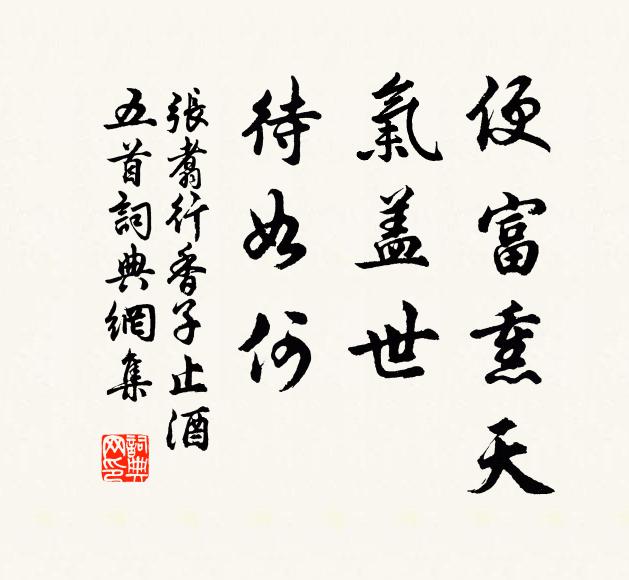 便富熏天
氣蓋世
待如何
張翥行香子止酒
五首詞典網集
詞典
网印